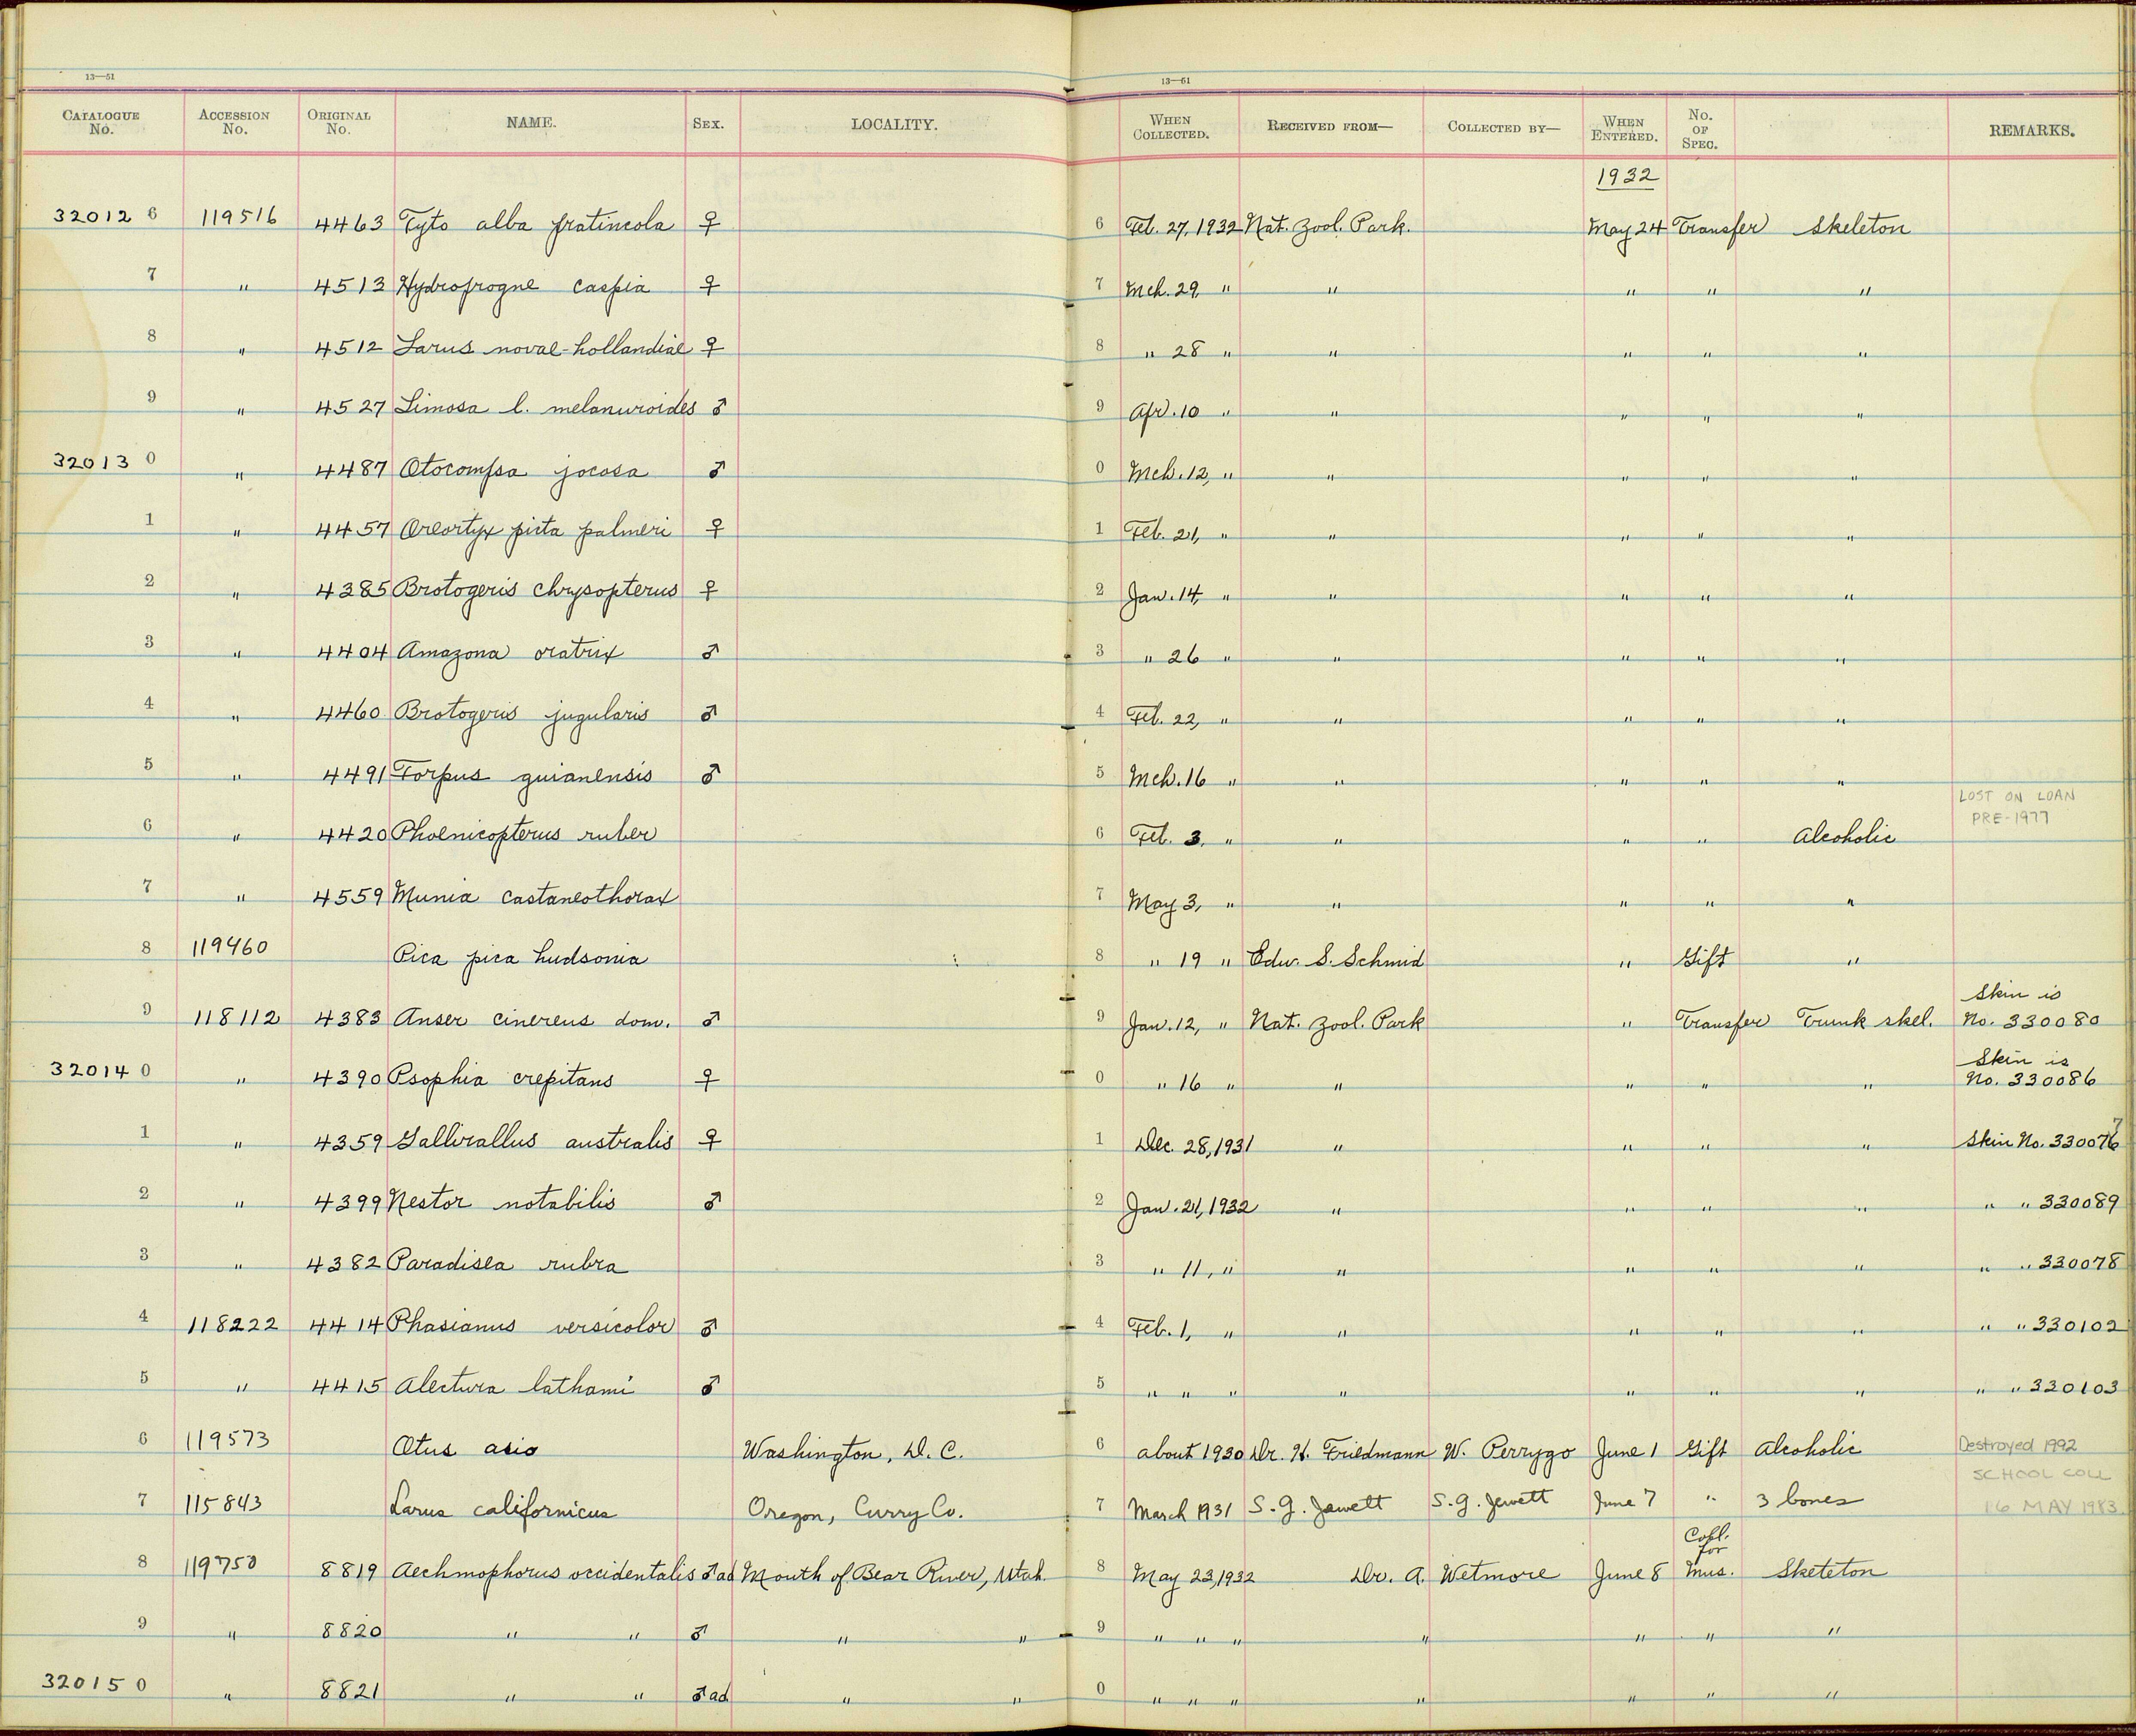 13—51 13—51
CATALOGUE No. ACCESSION No. ORIGINAL No. NAME. SEX. LOCALITY. WHEN COLLECTED. RECEIVED FROM— COLLECTED BY— WHEN ENTERED. No. OF SPEC. REMARKS.
1932
32012 6 119516 4463 Tyto alba pratincola ♀ 6 Feb. 27, 1932 Nat. Zool. Park. May 24 Transfer Skeleton
7 " 4513 Hydroprogne caspia ♀ 7 Mch. 29, " " " " "
8 " 4512 Larus novae-hollandiae ♀ 8 " 28 " " " " "
9 " 4527 Limosa l. melanuroides ♂ 9 Apr. 10 " " " " "
32013 0 " 4487 Otocompsa jocosa ♂ 0 Mch. 12, " " " " "
1 " 4457 Oreortyx picta palmeri ♀ 1 Feb. 21, " " " " "
2 " 4385 Brotogeris chrysopterus ♀ 2 Jan. 14, " " " " "
3 " 4404 Amazona oratrix ♂ 3 " 26 " " " " "
4 " 4460 Brotogeris jugularis ♂ 4 Feb. 22, " " " " "
5 " 4491 Forpus guianensis ♂ 5 Mch. 16 " " " " "
LOST ON LOAN
PRE-1977
6 " 4420 Phoenicopterus ruber 6 Feb. 3, " " " " Alcoholic
7 " 4559 Munia castaneothorax 7 May 3, " " " " "
8 119460 Pica pica hudsonia 8 " 19 " Edw. S. Schmid " Gift "
Skin is
9 118112 4383 Anser cinereus dom. ♂ 9 Jan. 12, " Nat. Zool. Park " Transfer Trunk skel. No. 330080
Skin is
32014 0 " 4390 Psophia crepitans ♀ 0 " 16 " " " " " No. 330086
7
1 " 4359 Gallirallus australis ♀ 1 Dec. 28, 1931 " " " " Skin No. 330076
2 " 4399 Nestor notabilis ♂ 2 Jan. 21, 1932 " " " " " " 330089
3 " 4382 Paradisea rubra 3 " 11, " " " " " " " 330078
4 118222 4414 Phasianus versicolor ♂ 4 Feb. 1, " " " " " " " 330102
5 " 4415 Alectura lathami ♂ 5 " " " " " " " " " 330103
6 119573 Otus asio Washington, D. C. 6 about 1930 Dr. H. Friedmann W. Perrygo June 1 Gift Alcoholic Destroyed 1992
SCHOOL COLL
7 115843 Larus californicus Oregon, Curry Co. 7 March 1931 S. G. Jewett S. G. Jewett June 7 " 3 bones 16 MAY 1983
Coll.
for
8 119750 8819 Aechmophorus occidentalis ♂ ad Mouth of Bear River, Utah. 8 May 23, 1932 Dr. A. Wetmore June 8 Mus. Skeleton
9 " 8820 " " ♂ " " 9 " " " " " " "
32015 0 " 8821 " " ♂ ad " " 0 " " " " " " "